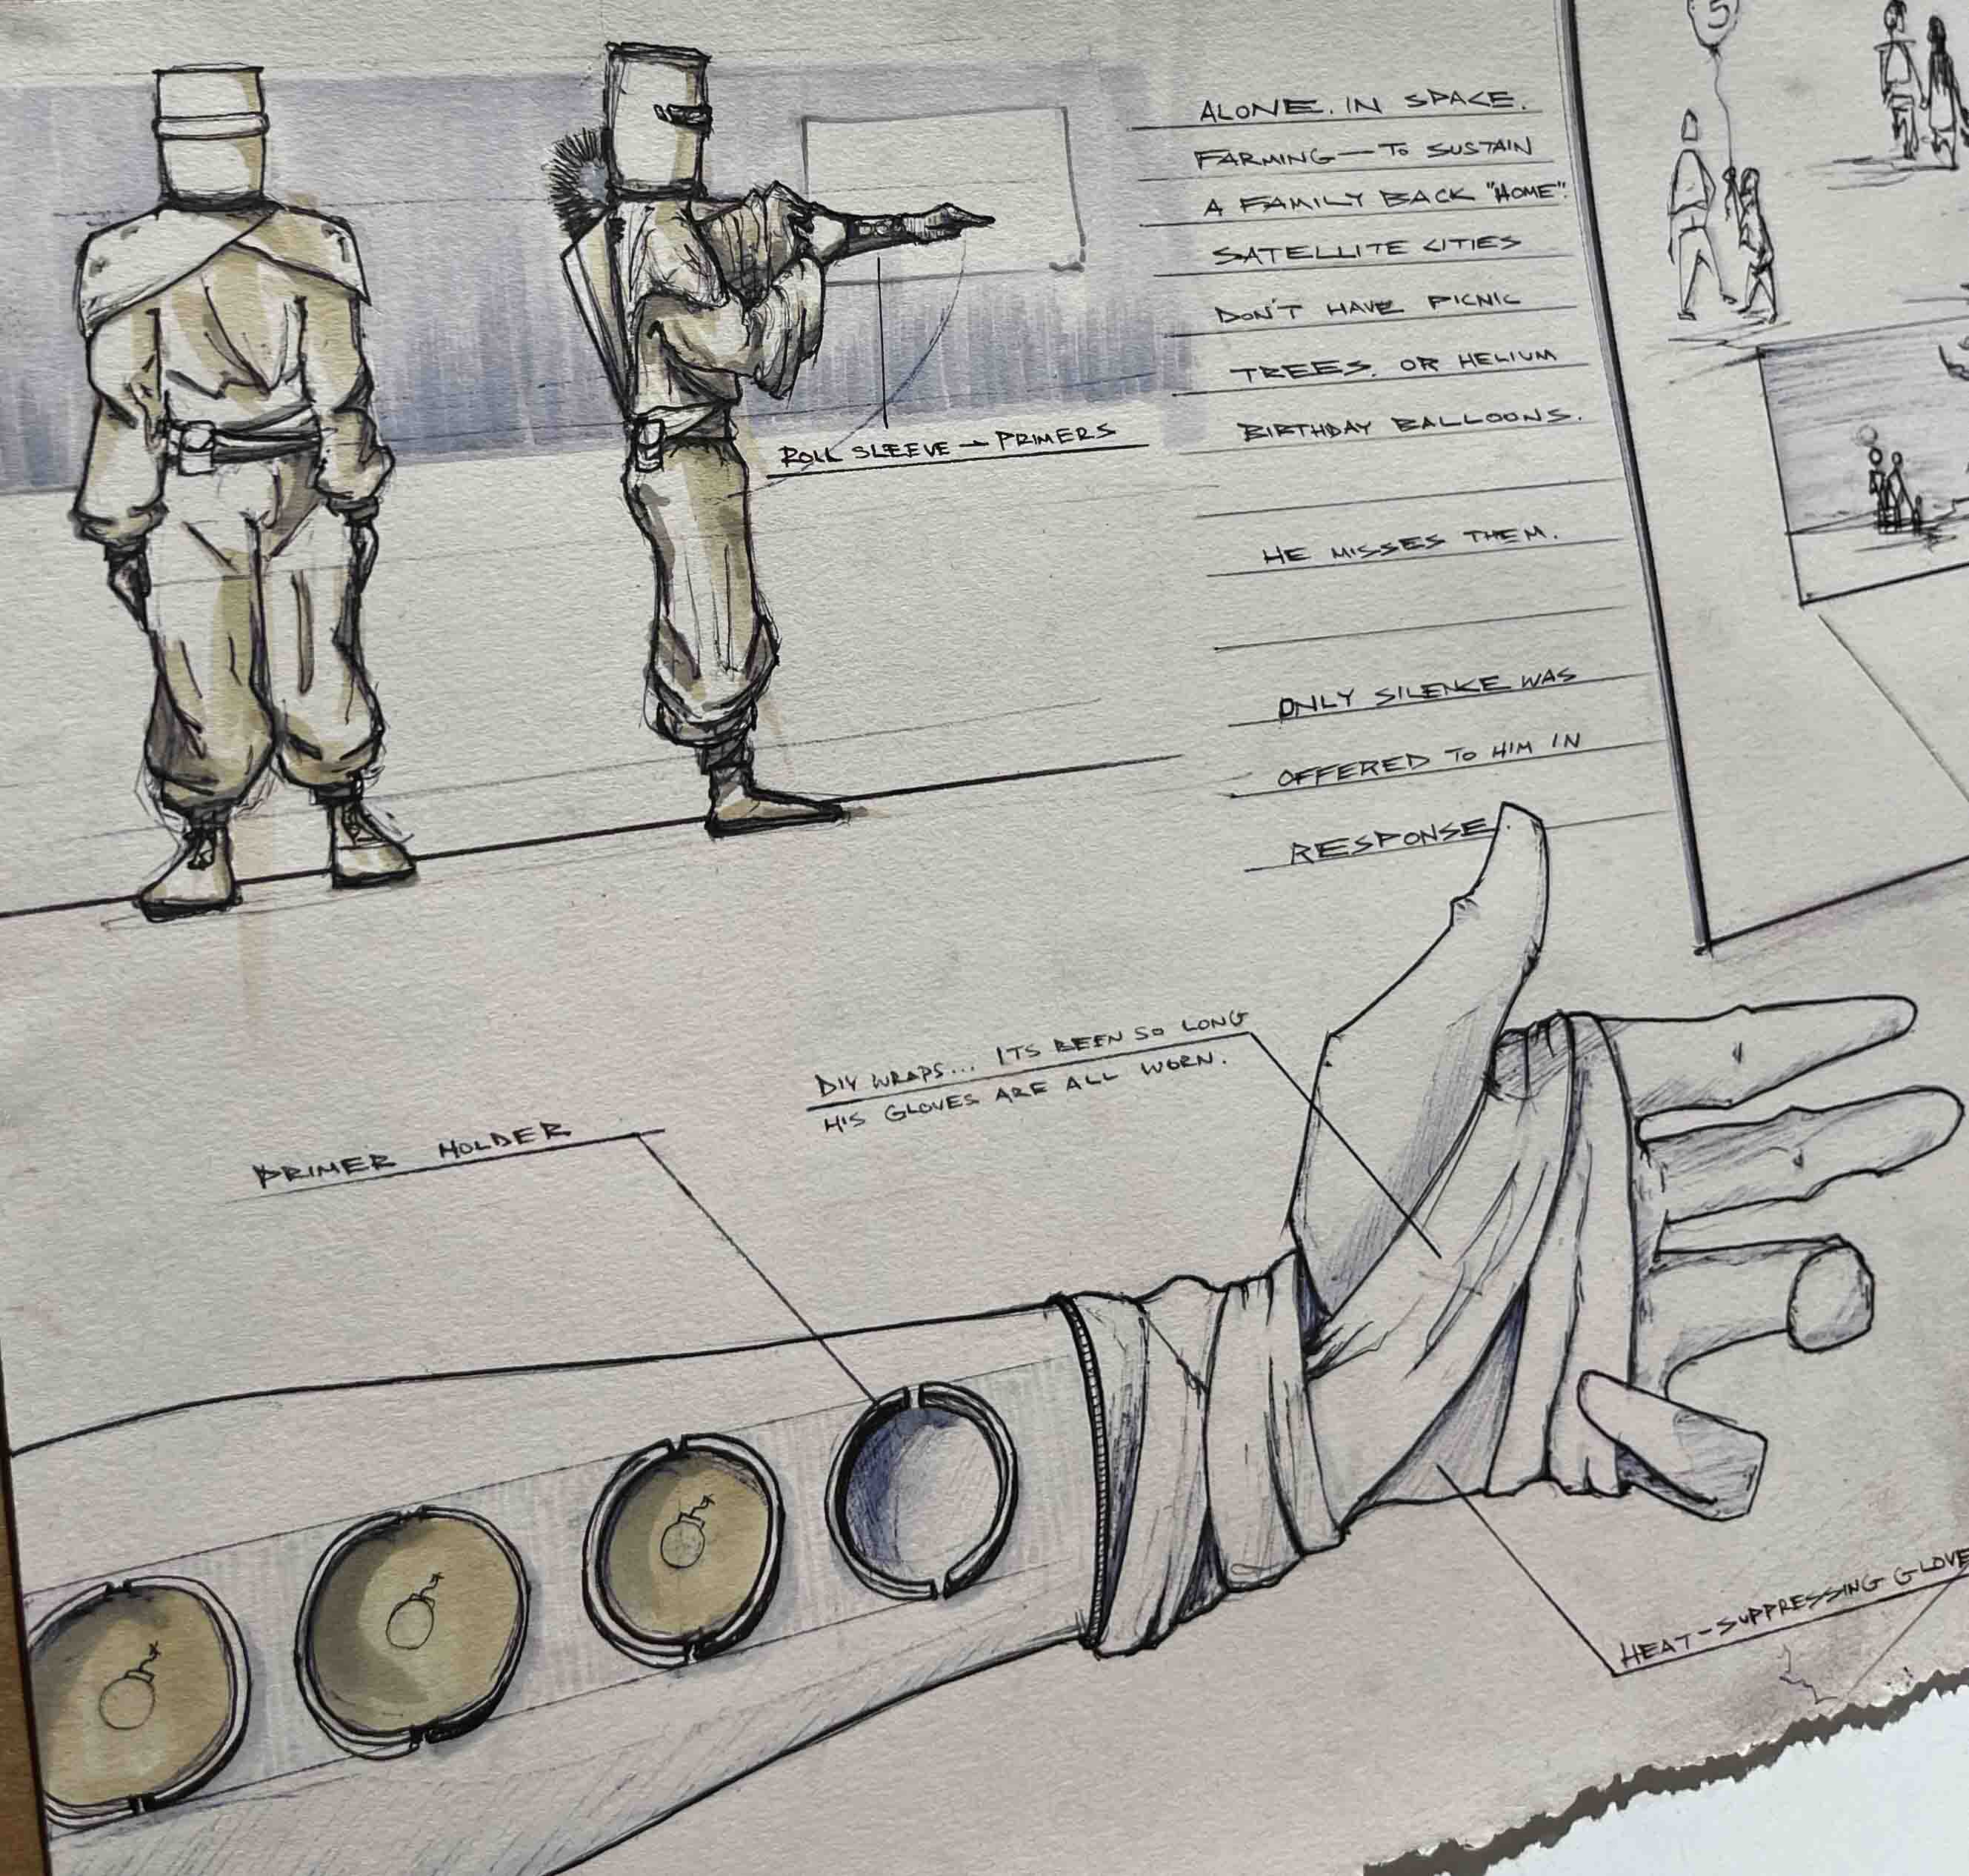 5
ALONE. IN SPACE.
FARMING — TO SUSTAIN
A FAMILY BACK "HOME".
SATELLITE CITIES
DON'T HAVE PICNIC
TREES. OR HELIUM
BIRTHDAY BALLOONS.
ROLL SLEEVE — PRIMERS
HE MISSES THEM.
ONLY SILENCE WAS
OFFERED TO HIM IN
RESPONSE.
DIY WRAPS... ITS BEEN SO LONG
HIS GLOVES ARE ALL WORN.
PRIMER HOLDER
HEAT-SUPPRESSING GLOVE